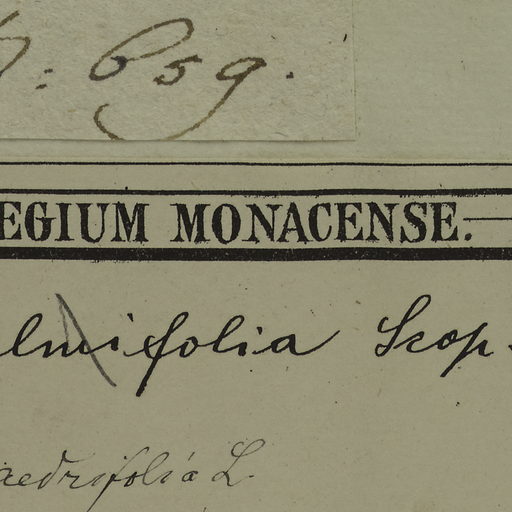 : 659.
EGIUM MONACENSE.
lmifolia Scop.
aedrifolia L.